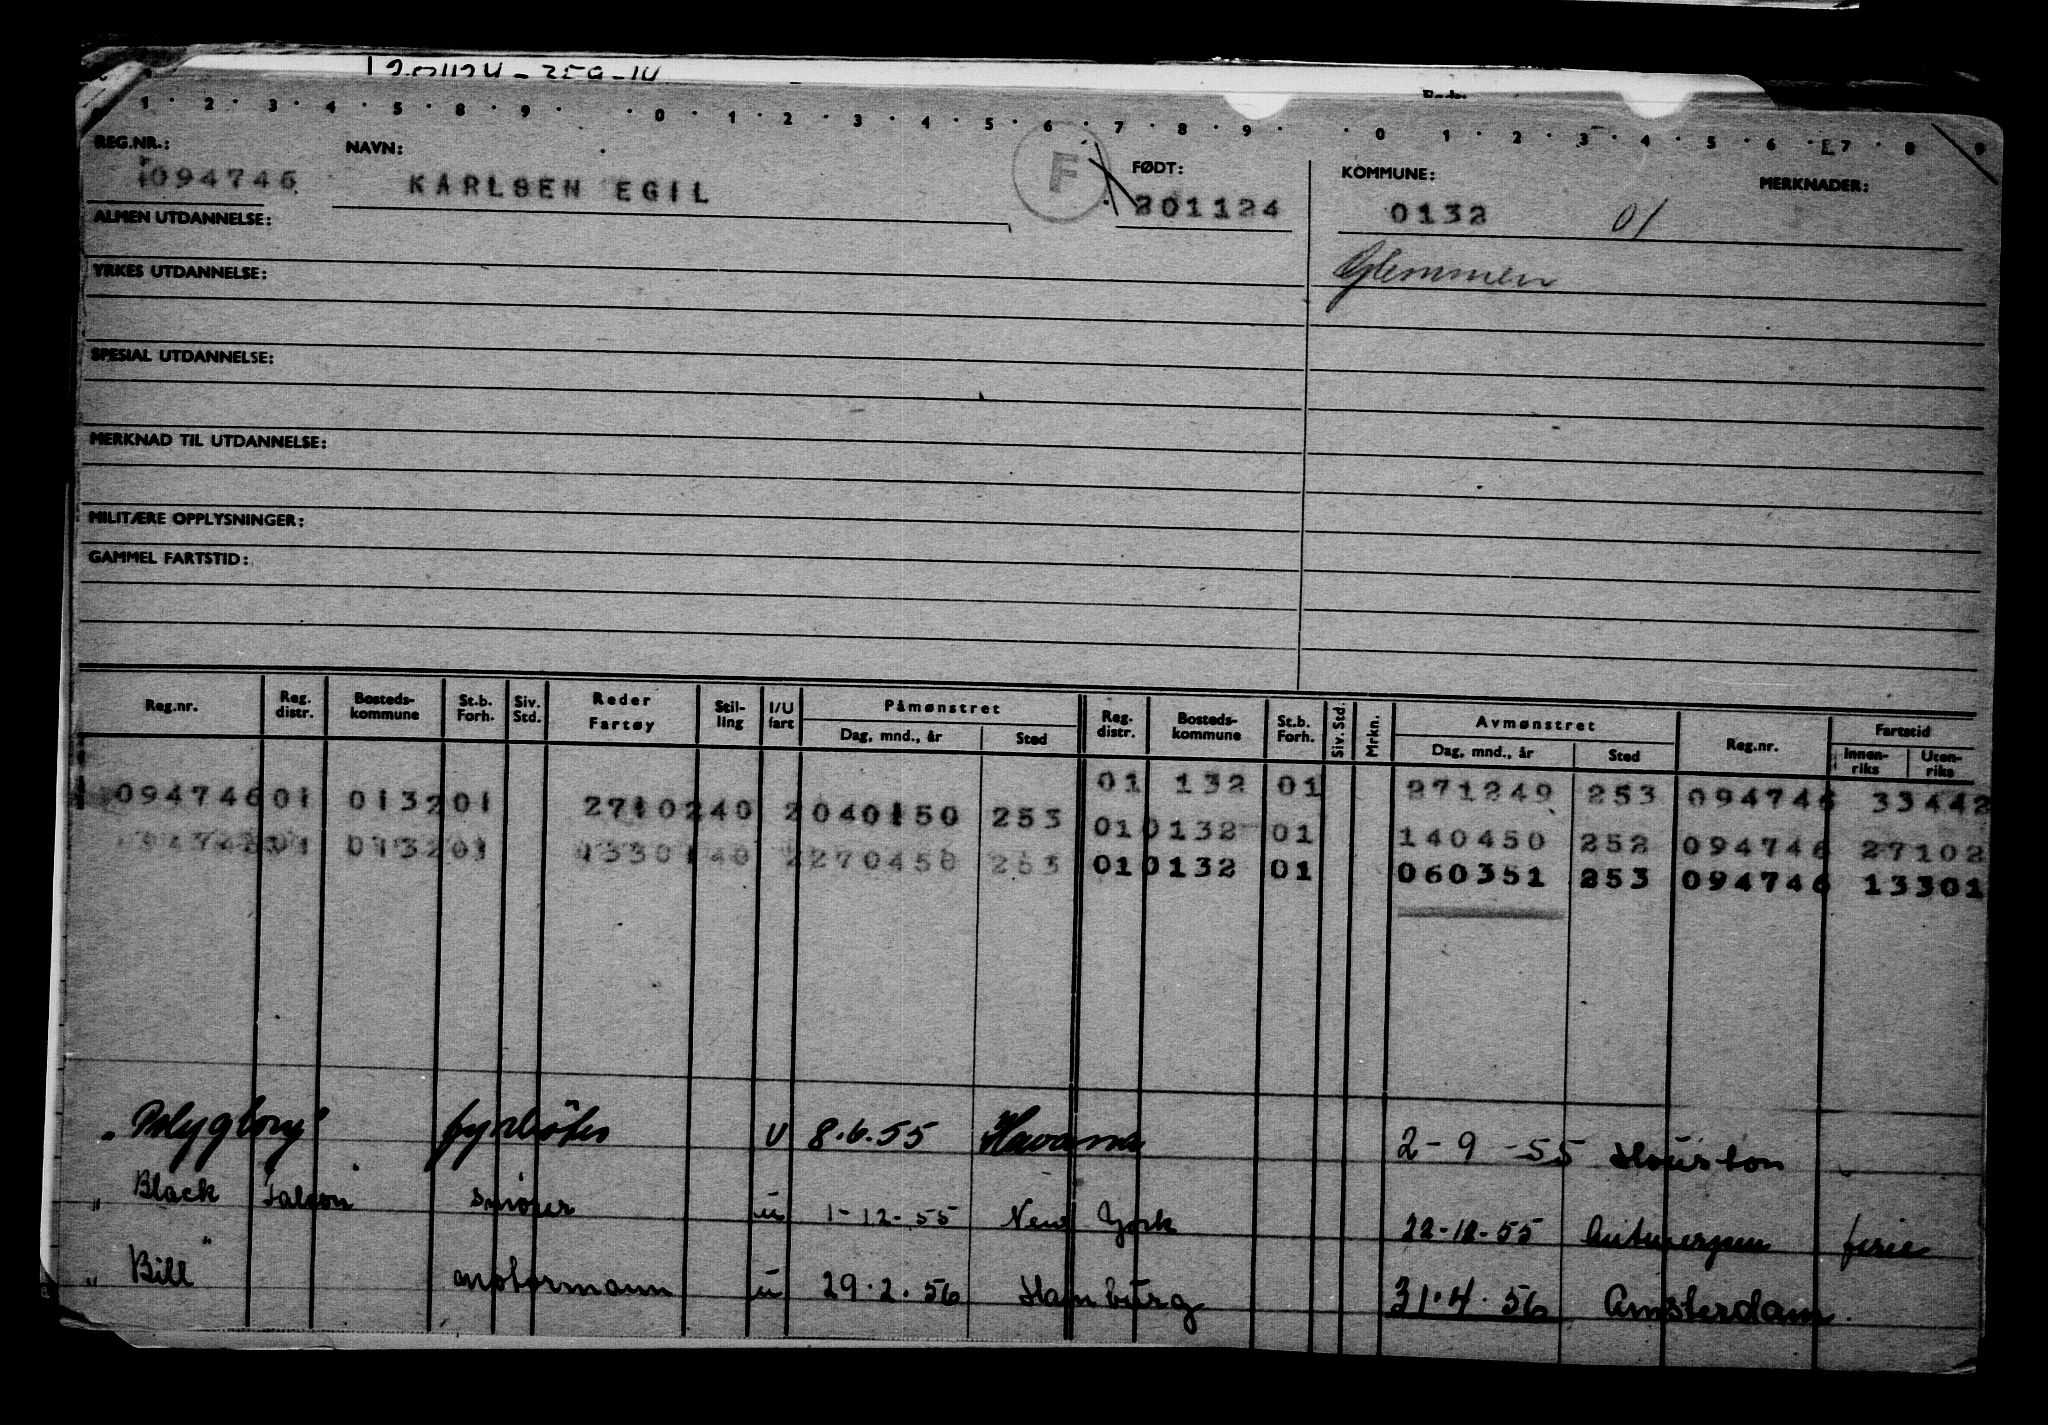 1 · 2 · 3 · 4 · 5 · 8 · 9 · · 0 · 1 · 2 · 3 · 4 · 5 · 6 · 7 · 8 · 9 · · 0 · 1 · 2 · 3 · 4 · 5 · 6 · 7 · 8 · 9
REG.NR.: NAVN: F FØDT: KOMMUNE: MERKNADER:
094746 KARLSEN EGIL 201124 0132 01
ALMEN UTDANNELSE:
Glemmen
YRKES UTDANNELSE:
SPESIAL UTDANNELSE:
MERKNAD TIL UTDANNELSE:
MILITÆRE OPPLYSNINGER:
GAMMEL FARTSTID:
Reg.nr. Reg. distr. Bosteds-kommune St.b. Forh. Siv. Std. Reder Fartøy Stil-ling I/U fart Påmønstret Dag, mnd., år Sted Reg. distr. Bosteds-kommune St.b. Forh. Siv. Std. Mrkn. Avmønstret Dag, mnd., år Sted Reg.nr. Fartstid Innen-riks Uten-riks
01 132 01 271249 253 094746 33442
094746 01 0132 01 2710240 2 040150 253 01 0132 01 140450 252 094746 27102
094746 01 0132 01 1330140 2 270450 01 0132 01 060351 253 094746 13301
"Polyglory" fyrbøter U 8.6.55 Havanna 2-9-55 Houston
"Black Falcon" smører u 1-12-55 New York 22-12-55 Antwerpen ferie
"Bill" motormann u 29.2.56 Hamburg 31.4.56 Amsterdam.